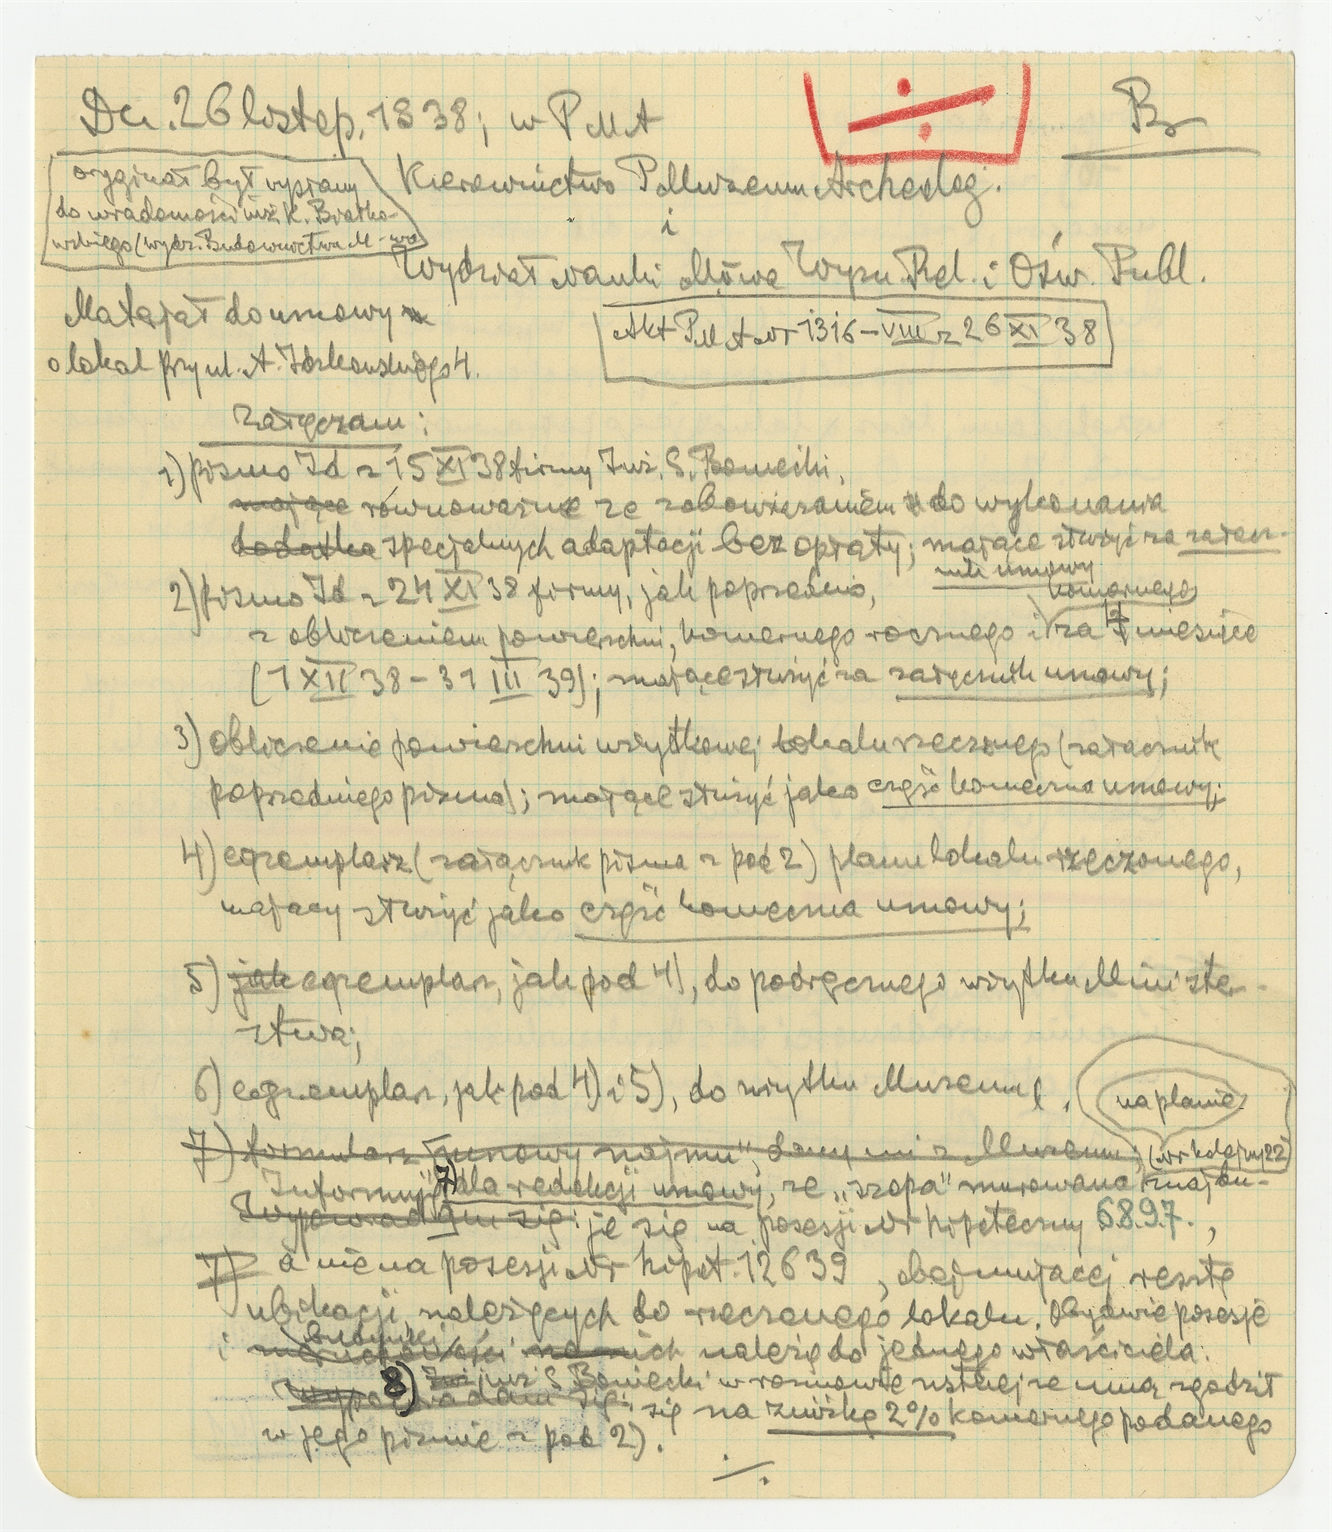 Dn. 26 listop. 1938; w PMA
Bz
oryginał był wysłany
do wiadomości inż. K. Białko-
wskiego (wydz. Budownictwa M-wa
Kierownictwo P. Muzeum Archeolog.
i
Wydział Nauki Min. Wyzn. Rel. i Ośw. Publ.
Materjał do umowy
o lokal przy ul. A.        4.
Akt PMA Nr 1316-VIII z 26 XI 38
Załączam:
1) pismo Id z 15 XI 38 firmy Inż. S. Boniecki,
mające równoważne ze zobowiązaniem do wykonania
dodatku specjalnych adaptacji bez opłaty; mające służyć za załącz-
nik umowy
2) pismo Id z 24 XI 38 firmy, jak poprzednio,
komornego
z obliczeniem powierzchni, komornego rocznego i za 4 miesiące
(1 XII 38 - 31 III 39); mające służyć za załącznik umowy;
3) obliczenie powierzchni użytkowej lokalu rzeczonego (załącznik
poprzedniego pisma); mające służyć jako część konieczna umowy;
4) egzemplarz (załącznik pisma z pod 2) planu lokalu rzeczonego,
mający służyć jako część konieczna umowy;
5) jak egzemplarz, jak pod 4), do podręcznego użytku Minister-
stwa;
6) egzemplarz, jak pod 4) i 5), do użytku Muzeum.
na planie
(nr kolejny 22)
7) formularz "umowy najmu", dany mi z Muzeum;
Informuję 7) dla redakcji umowy, że „szopa" murowana znajdu-
Wypowiadam się: je się na posesji Nr hipoteczny 6897.,
7) a nie na posesji Nr hipot. 12639, obejmującej resztę
ubikacji należących do rzeczonego lokalu. Obydwie posesje
budynki
i nieruchomości na nich należą do jednego właściciela.
8) Inż inż S. Boniecki w rozmowie ustnej ze mną zgodził
Wypowiadam się: się na zniżkę 2% komornego podanego
w jego piśmie z pod 2).